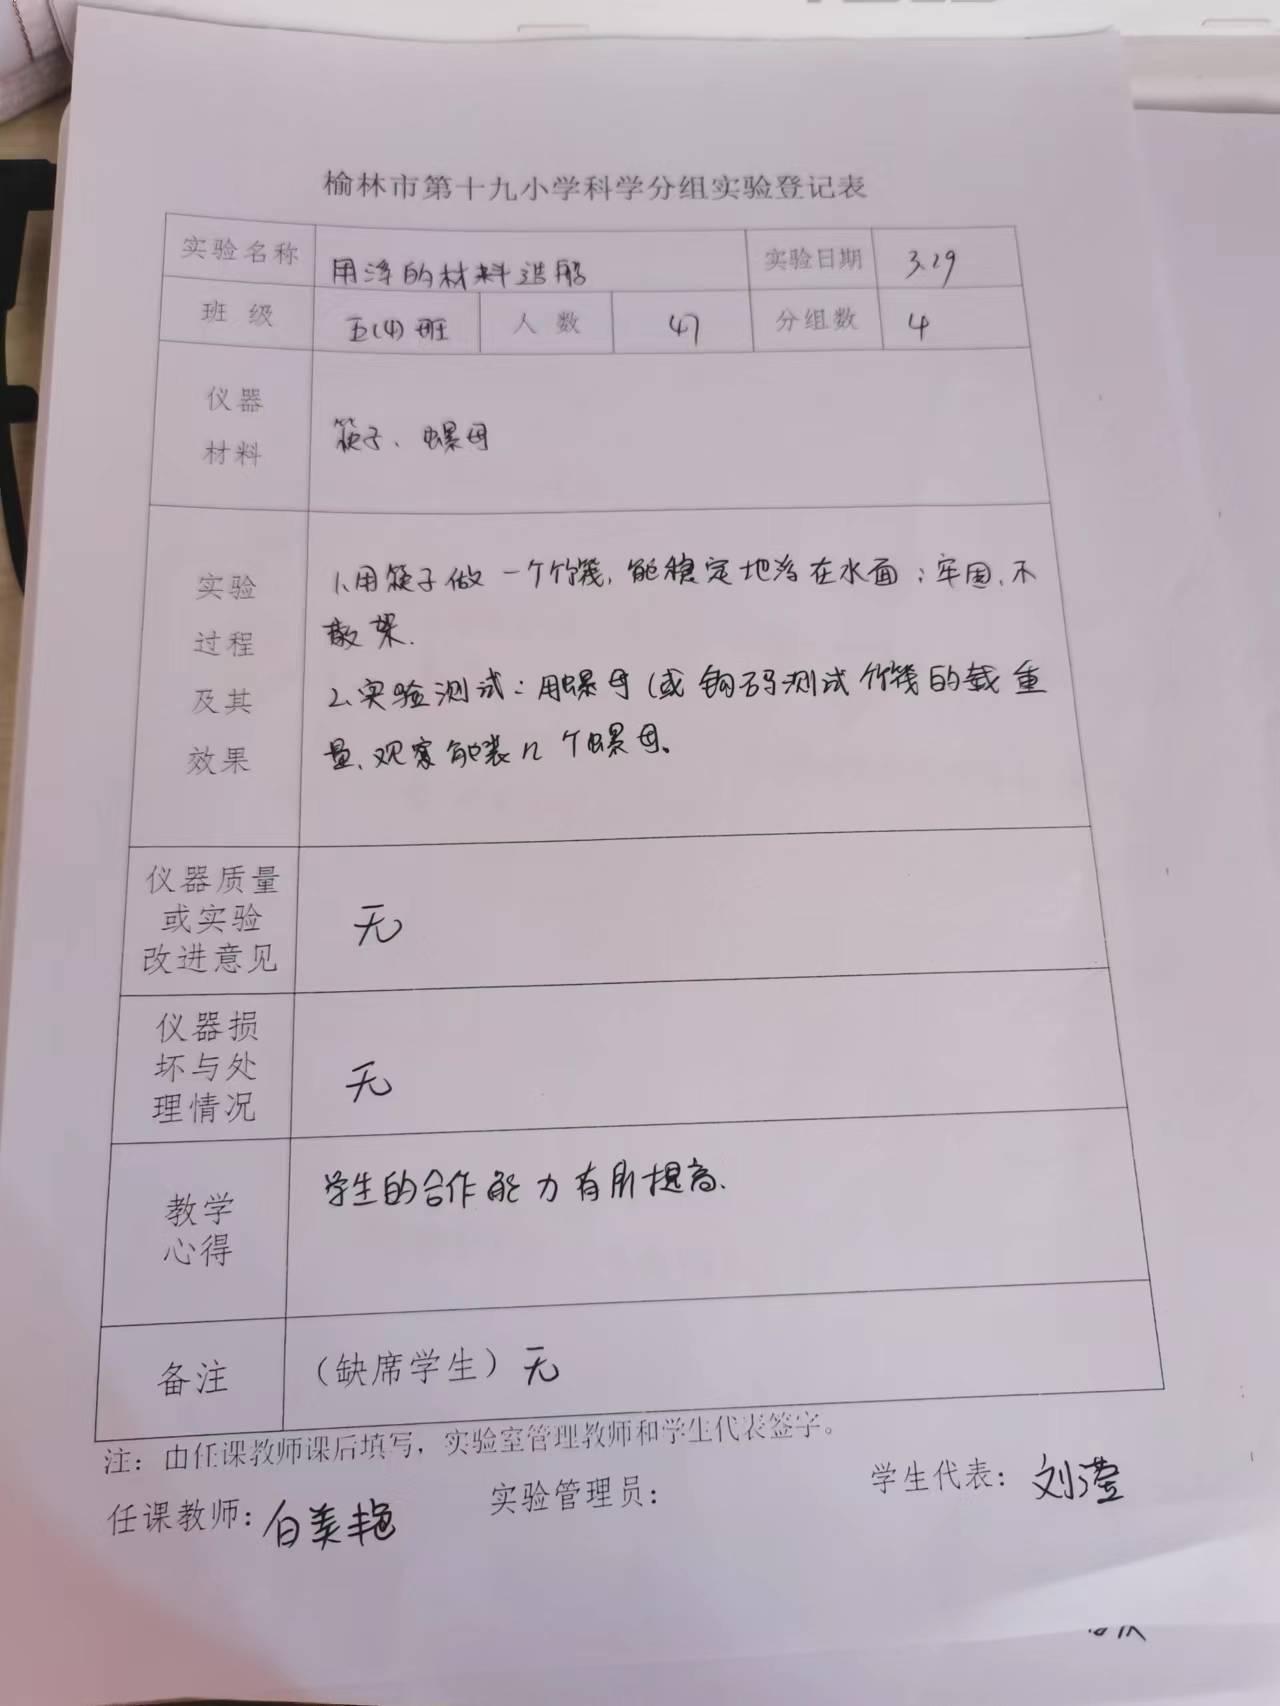 榆林市第十九小学科学分组实验登记表
实验名称 用浮的材料造船 实验日期 3.29
班 级 五(4)班 人 数 47 分组数 4
仪器
材料
筷子、螺母
实验
过程
及其
效果
1.用筷子做一个竹筏,能稳定地浮在水面;牢固,不
散架.
2.实验测试:用螺母(或钩码测试竹筏的载重
量,观察能装几个螺母。
仪器质量
或实验
改进意见
无
仪器损
坏与处
理情况
无
教学
心得
学生的合作能力有所提高.
备注 (缺席学生)无
注:由任课教师课后填写,实验室管理教师和学生代表签字。
任课教师:白美艳 实验管理员: 学生代表:刘滢